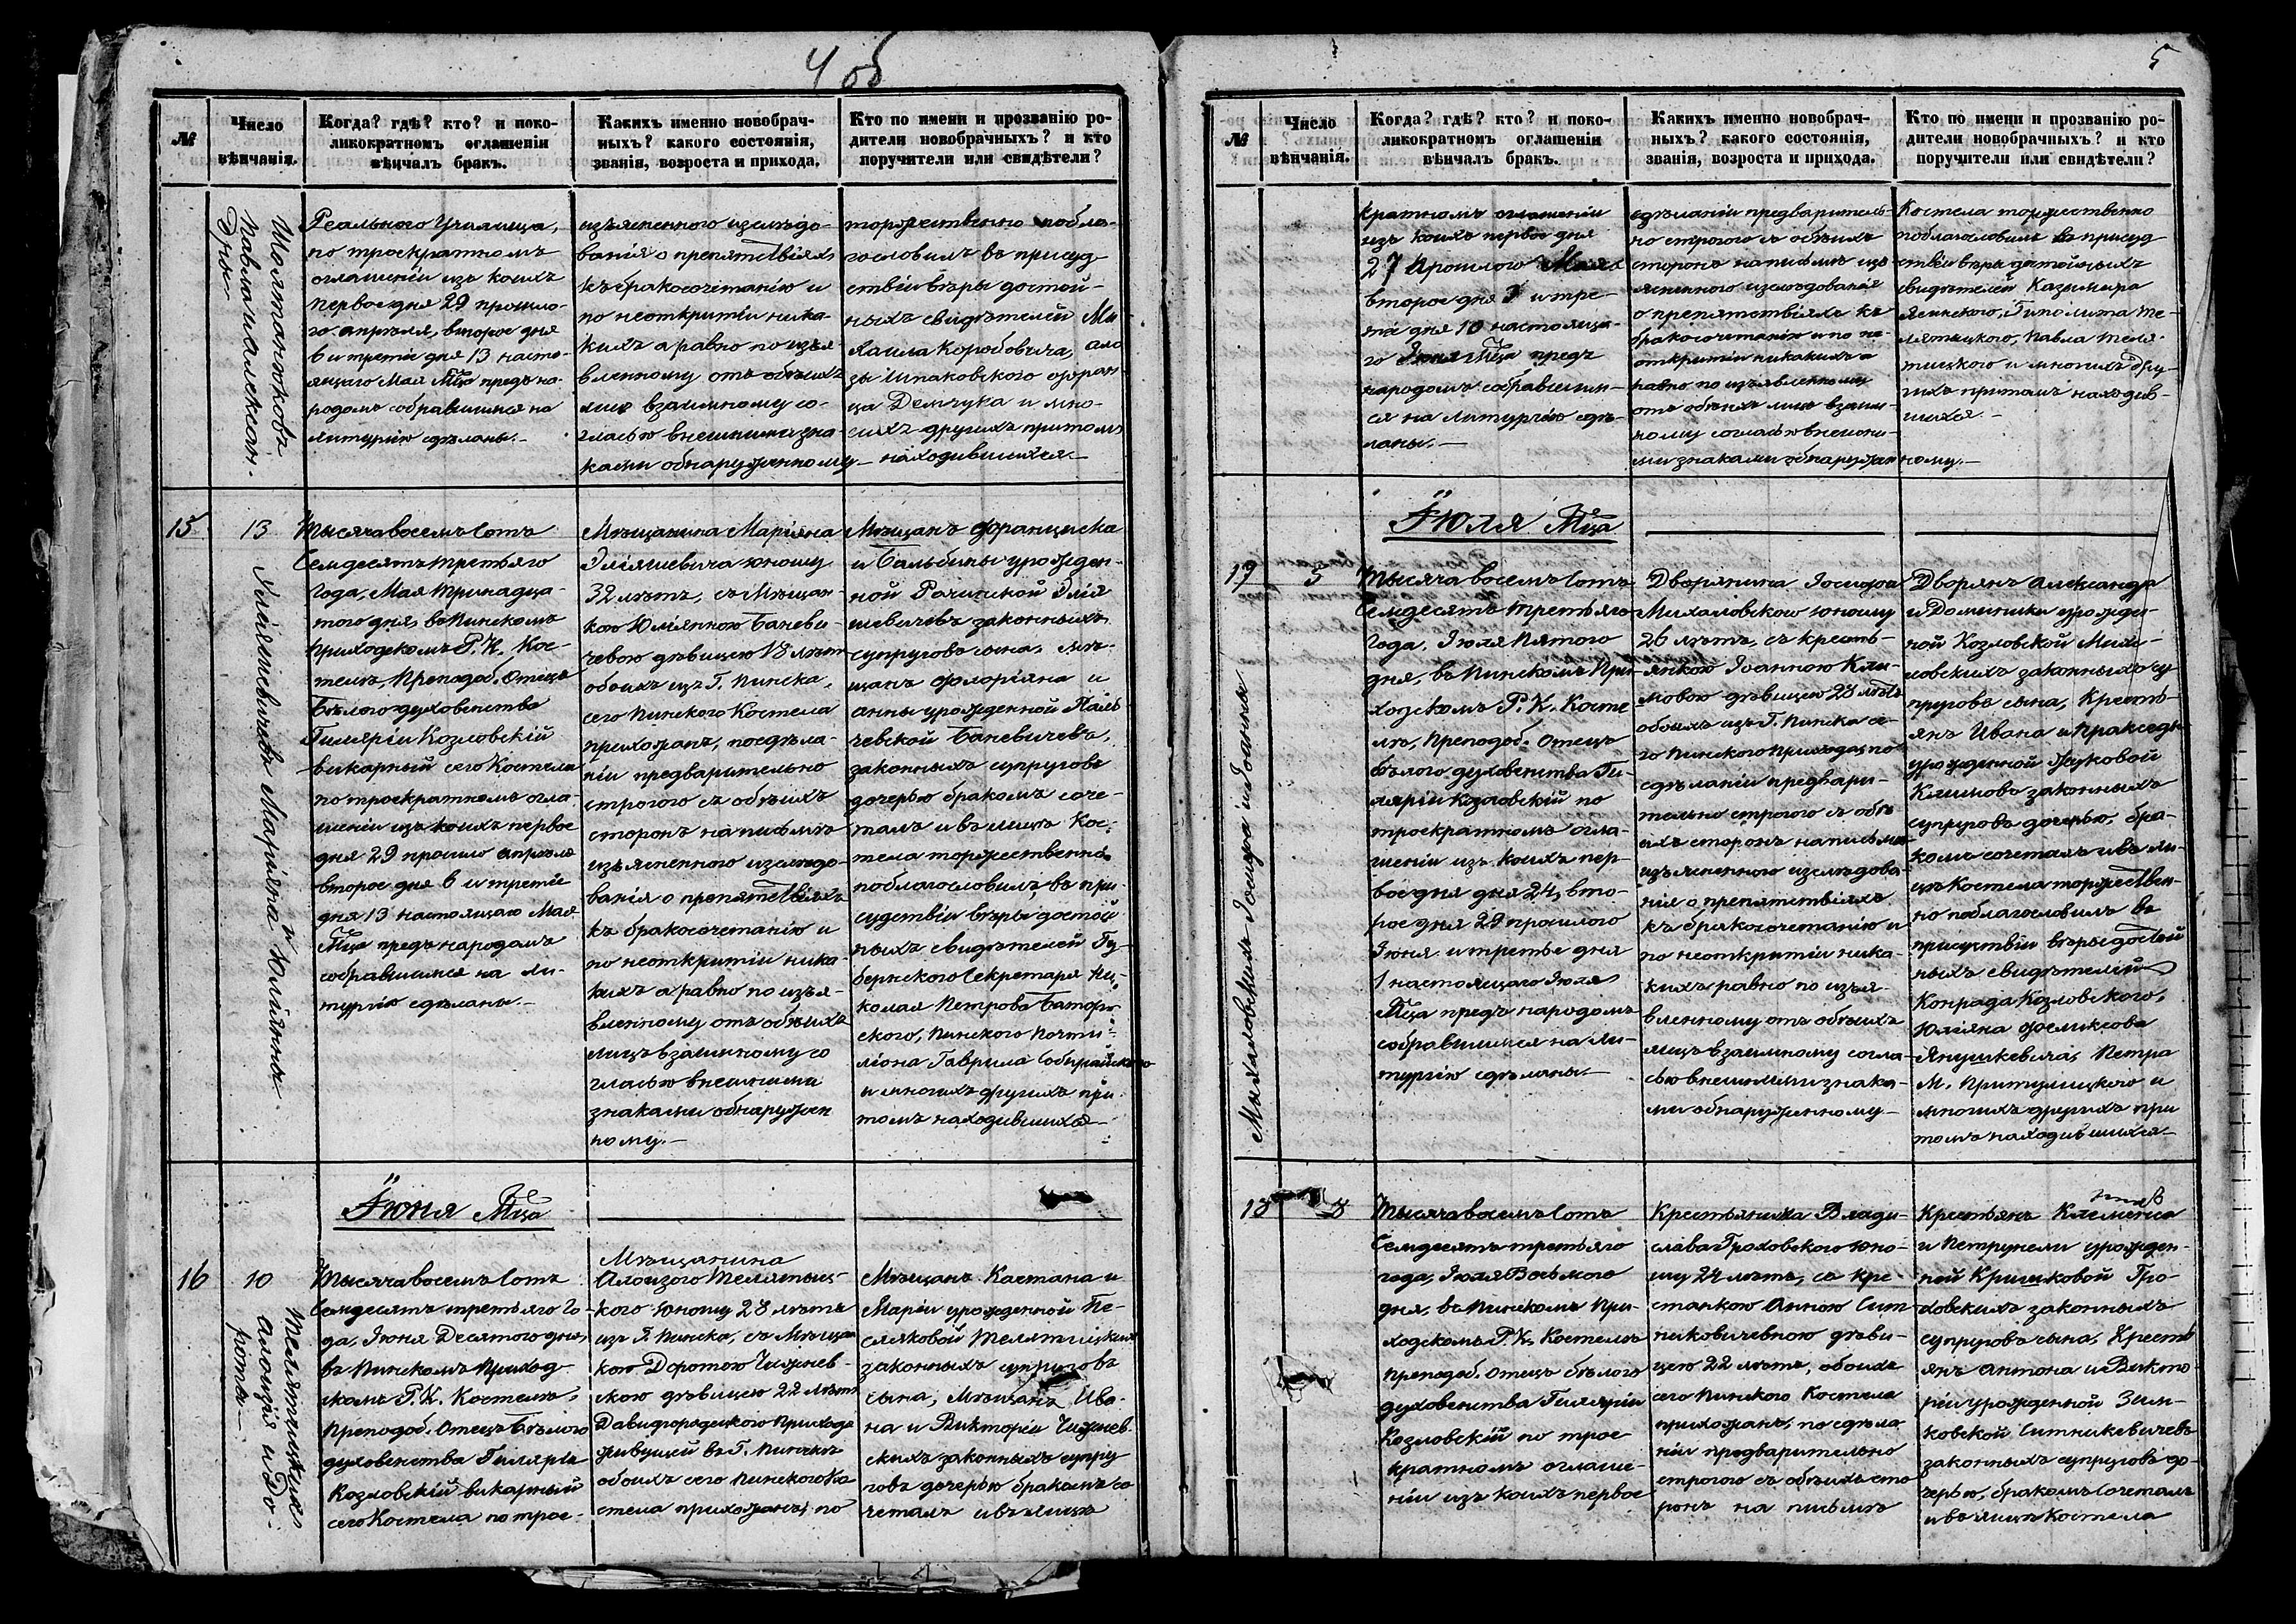 4 об
№
Число
вѣнчанія.
Когда? гдѣ? кто? и поко-
ликократномъ оглашеніи
вѣнчалъ бракъ.
Какихъ именно новобрач-
ныхъ? какого состоянія,
званія, возроста и прихода.
Кто по имени и прозванію ро-
дители новобрачныхъ? и кто
поручители или свидѣтели?
Шолтанюковъ
Павла и Александ.
Реальнаго Училища,
по троекратномъ
оглашеніи изъ коихъ
первое дня 29 прошло-
го апрѣля, второе дня
6 и третіе дня 13 насто-
ящаго Мая Мца предъ на-
родомъ собравшимся на
литургію сдѣланы.—
изъясненного изслѣдо-
ванія о препятствіяхъ
къ бракосочетанію и
по неоткрытіи ника-
кихъ а равно по изъя-
вленному отъ обѣихъ
лицъ взаимному со-
гласью внешними зна-
ками обнаруженному—
торжественно побла-
гословилъ въ присуд-
ствіи вѣры достой-
ныхъ свидѣтелей Ми
хаила Коробовича, Алоі
зы Шпаковского Фран
ца Демчука и мно-
гихъ другихъ притомъ
находившихся.—
15
13
Эліяшевичовъ Маріяна и Юліянны
Тысяча восемъ Сотъ
Семдесятъ третьяго
Года, Мая Тринадца-
того дня, въ Пинскомъ
Приходскомъ Р. К. Кос-
телѣ, Преподоб. Отецъ
Бѣлого духовенства
Гиляріи Козловскій
викарный сего Костела
по троекратномъ огла-
шеніи изъ коихъ первое
дня 29 прошло апрѣля
второе дня 6 и третіе
дня 13 настоящаго Мая
Мца предъ народомъ
собравшимся на ли-
тургію сдѣланы.—
Мѣщанина Маріяна
Эліяшевича юношу
32 лѣтъ, съ Мѣщан-
кою Юліянною Баневи-
чевою дѣвицею 18 лѣтъ
обоихъ изъ Г. Пинска,
сего Пинского Костела
прихожанъ, посдѣла-
ніи предварительно
строгого съ обѣихъ
сторонъ на письмѣ
изъясненного изслѣдо-
ванія о препятствіяхъ
къ бракосочетанію и
по неоткрытіи ника-
кихъ а равно по изъя-
вленному отъ обѣихъ
лицъ взаимному со
гласью внешними
знаками обнаружен
ному.—
Мѣщанъ Франциска
и Бальбины урожден-
ной Рачинской Элія
шевичовъ законныхъ
супруговъ сына, Мѣ-
щанъ Флоріяна и
Анны урожденной Паль
чевской Баневичовъ,
законныхъ супруговъ
дочерью бракомъ соче-
талъ и въ лицѣ Кос-
тела торжественно
поблагословилъ, въ при-
судствіи вѣры достой
ныхъ свидѣтелей Гу-
бернского Секретаря Ни-
колая Петрова Батори
ского, Пинского Почти-
ліона Гаврила Собирайского
и многихъ другихъ при
томъ находившихся—
Іюня Мца
16
10
Телятицкихъ
Алоизія и До-
роты.—
Тысяча восемъ Сотъ
Семдесятъ третьяго Го
да, Іюня Десятого дня,
въ Пинскомъ Приход
скомъ Р. К. Костелѣ,
Преподоб. Отецъ Бѣлого
духовенства Гиляріи
Козловскій викарный
сего Костела по трое-
Мѣщанина
Алоизого Телятыц-
кого юношу 28 лѣтъ
изъ Г. Пинска, съ Мѣщан
кою Доротою Чижнев-
скою дѣвицею 22 лѣтъ
Давидгородецкого Прихода
живущей въ Г. Пинскѣ
обоихъ сего Пинского Ко
стела прихожанъ, по
Мѣщанъ Каетана и
Маріи урожденной Пе-
сляковой Телятицкихъ
законныхъ супруговъ
сына, Мѣщанъ Ива-
на и Викторіи Чижнев
скихъ законныхъ супру
говъ дочерью бракомъ со
четалъ и въ лицѣ
5
№
Число
вѣнчанія.
Когда? гдѣ? кто? и поко-
ликократномъ оглашеніи
вѣнчалъ бракъ.
Какихъ именно новобрач-
ныхъ? какого состоянія,
званія, возроста и прихода.
Кто по имени и прозванію ро-
дители новобрачныхъ? и кто
поручители или свидѣтели?
кратномъ оглашеніи
изъ коихъ первое дня
27 Прошлого Мая
второе дня 3 и тре-
тіе дня 10 настояща-
го Іюня Мца предъ
народомъ собравшим-
ся на литургію сдѣ-
ланы.—
сдѣланіи предваритель-
но строгого съ обѣихъ
сторонъ на письмѣ изъ
ясненного изслѣдованія
о препятствіяхъ къ
бракосочетанію и по не-
открытіи никакихъ а
равно по изъявленному
отъ обѣихъ лицъ взаим-
ному согласью внешни-
ми знаками обнаружен
ному.—
Костела торжественно
поблагословилъ въ присуд
ствіи вѣры достойныхъ
свидѣтелей Казимира
Ясинского, Гиполита Те-
лятицкого, Павла Теля-
тицкого и многихъ дру-
гихъ притомъ находив-
шихся.—
Іюля Мца
17
5
Михаловскихъ Іосифа и Іоанны
Тысяча восемъ Сотъ
Семдесятъ третьяго
Года, Іюля Пятого
дня, въ Пинскомъ При
ходскомъ Р. К. Косте
лѣ, Преподоб. Отецъ
бѣлого духовенства Ги-
ляріи Козловскій по
троекратномъ огла-
шеніи изъ коихъ пер-
вое дня дня 24, вто-
рое дня 29 прошлого
Іюня и третье дня
1 настоящаго Іюля
Мца предъ народомъ
собравшимся на ли-
тургію сдѣланы.—
Дворянина Іосифа
Михаловского юношу
26 лѣтъ, съ кресть-
янкою Іоанною Кли-
мовою дѣвицею 28 лѣтъ
обоихъ изъ Г. Пинска се-
го Пинского Прихода, по
сдѣланіи предвари-
тельно строгого съ обѣ
ихъ сторонъ на письмѣ
изъясненного изслѣдова-
нія о препятствіяхъ
къ бракосочетанію и
по неоткрытіи ника-
кихъ равно по изъя-
вленному отъ обѣихъ
лицъ взаимному согла-
сью внешними знака-
ми обнаруженному—
Дворянъ Александра
и Доминики урожден-
ной Козловской Миха-
ловскихъ законныхъ су
пруговъ сына, Кресть-
янъ Ивана и Пракседы
урожденной Жуковой
Климовъ законныхъ
супруговъ дочерью, бра-
комъ сочеталъ и въ ли-
цѣ Костела торжествен-
но поблагословилъ въ
присутствіи вѣры достой
ныхъ свидѣтелей
Конрада Козловского,
Юліяна Феликсова
Янушкевича, Петра
М. Притулицкого и
многихъ другихъ при
томъ находившихся—
18
8
Тысяча восемъ Сотъ
Семдесятъ третьяго
года, Іюля Восьмого
дня, въ Пинскомъ При-
ходскомъ Р. К. Костелѣ
Преподоб. Отецъ бѣлого
духовенства Гиляріи
Козловскій по трое
кратномъ оглаше-
ніи изъ коихъ первое
Крестьянина Влади-
слава Гроховского юно-
шу 24 лѣтъ, со кре-
стянкою Анною Сит
никовичевною дѣви-
цею 22 лѣтъ, обоихъ
сего Пинского Костела
прихожанъ, по сдѣла
ніи предварительно
строгого съ обѣихъ сто
ронъ на письмѣ
Крестьянъ Клеменса
и Петрунели урожден-
ной Кришковой Гро-
ховскихъ законныхъ
супруговъ сына, Кресть
янъ Антона и Викто-
ріи урожденной Зин-
ковской Ситникевичевъ
законныхъ супруговъ до-
черью, бракомъ сочеталъ
и въ лицѣ Костела